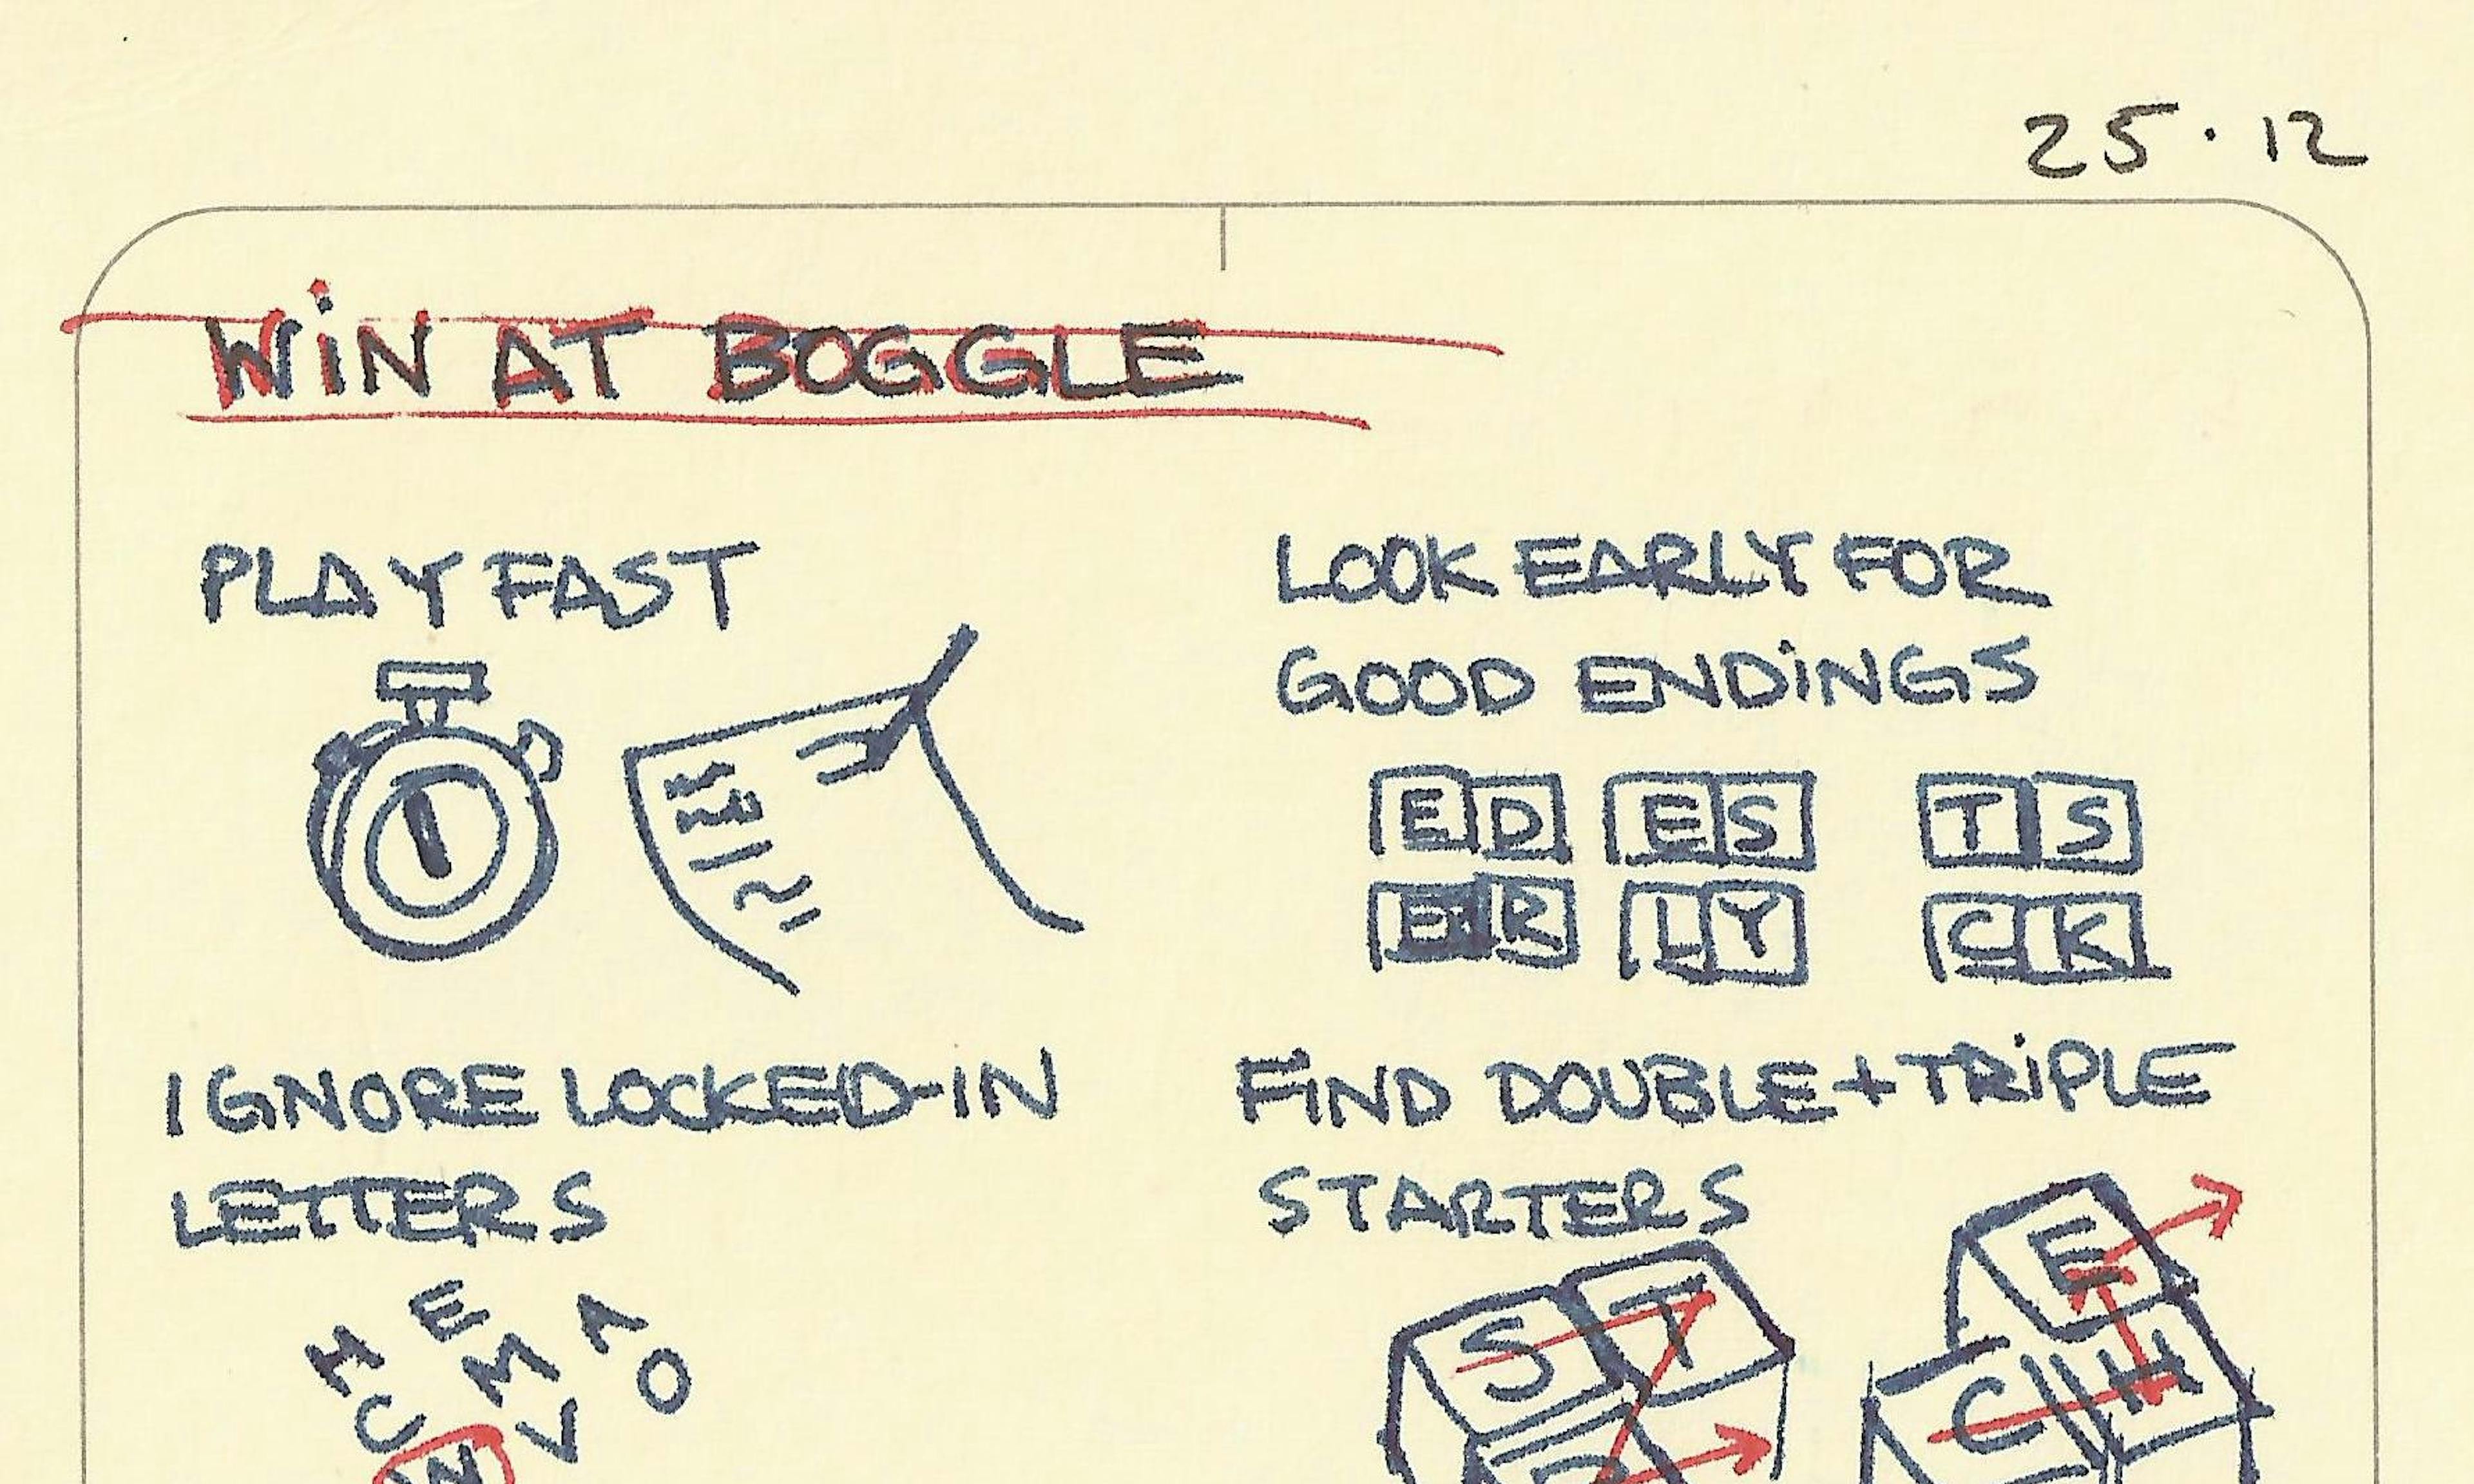 25.12
WiN AT BOGGLE
PLAY FAST
LOOK EARLY FOR
GOOD ENDiNGS
ED ES TS
ER LY CK
IGNORE LOCKED-IN
LETTERS
FiND DOUBLE+TRiPLE
STARTERS
H E A
C M O
W V
S T
E
C H